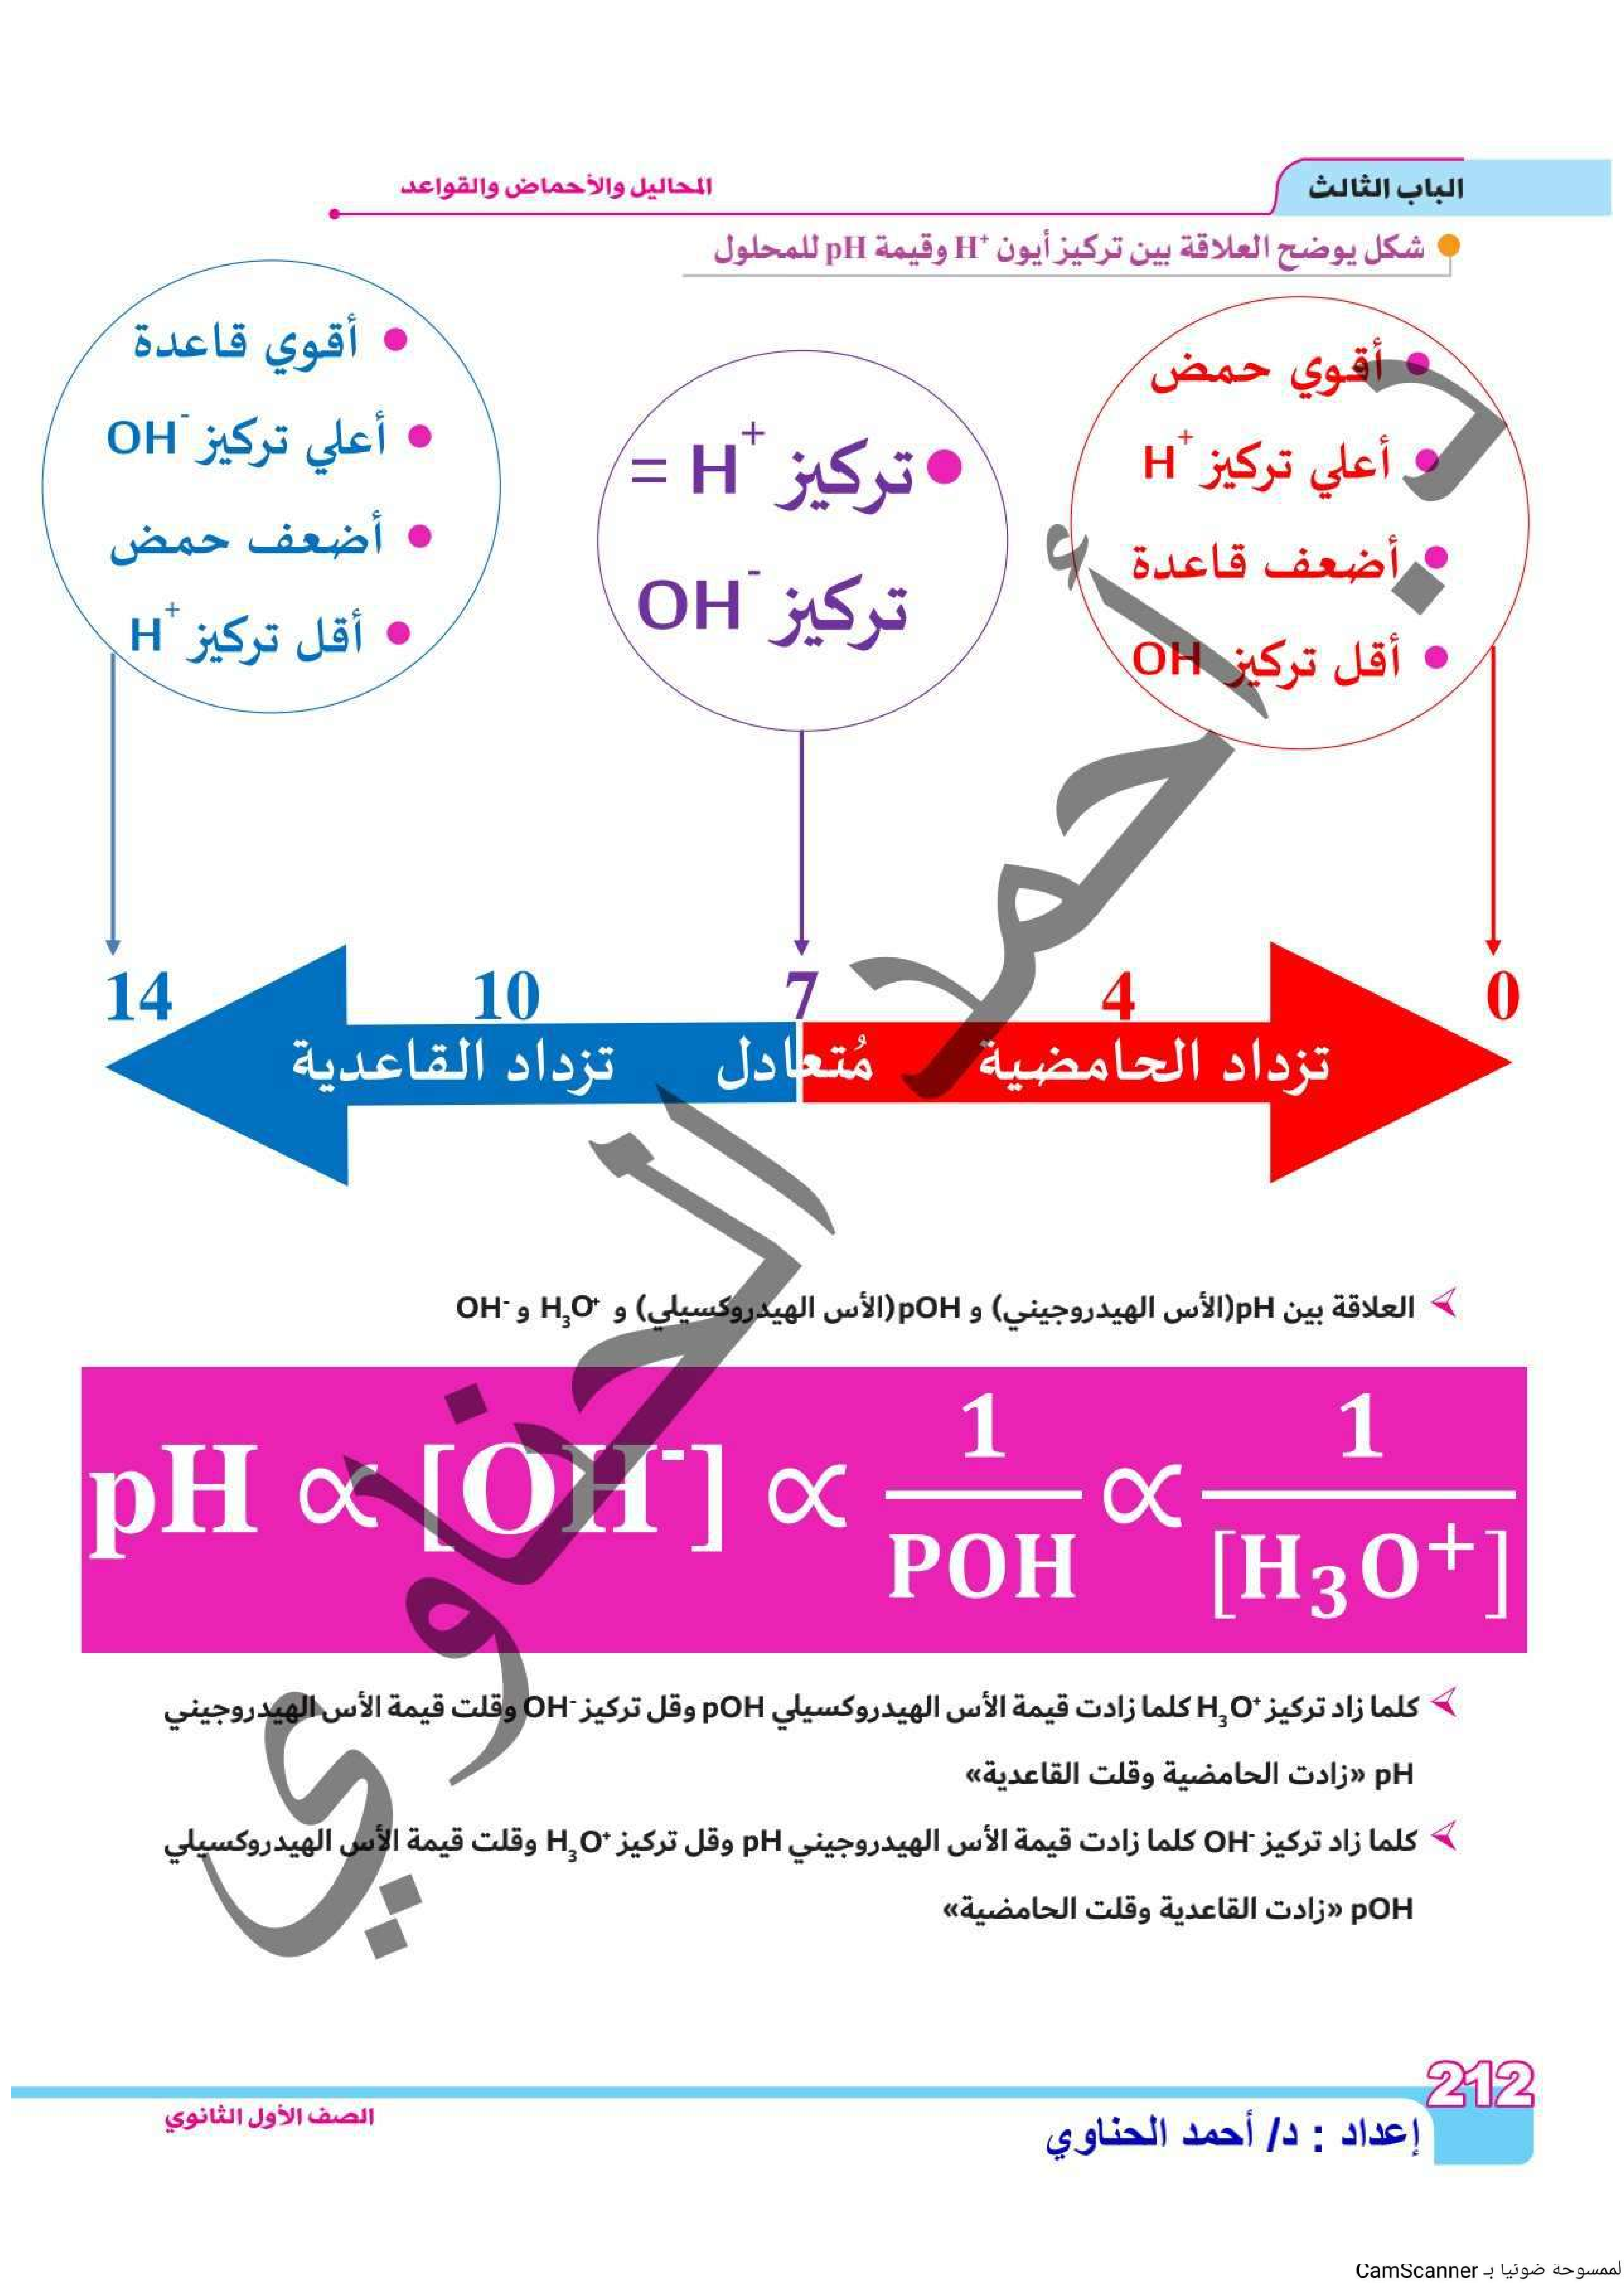 الباب الثالث
المحاليل والأحماض والقواعد
شكل يوضح العلاقة بين تركيز أيون H⁺ وقيمة pH للمحلول
• أقوي حمض
• أعلي تركيز H⁺
• أضعف قاعدة
• أقل تركيز OH
• تركيز H⁺ =
تركيز OH⁻
• أقوي قاعدة
• أعلي تركيز OH⁻
• أضعف حمض
• أقل تركيز H⁺
14 10 7 4 0
تزداد الحامضية
مُتعادل
تزداد القاعدية
العلاقة بين pH(الأس الهيدروجيني) و pOH(الأس الهيدروكسيلي) و H₃O⁺ و OH⁻
pH ∝ [OH⁻] ∝ 1/POH ∝ 1/[H₃O⁺]
كلما زاد تركيز H₃O⁺ كلما زادت قيمة الأس الهيدروكسيلي pOH وقل تركيز OH⁻ وقلت قيمة الأس الهيدروجيني
pH «زادت الحامضية وقلت القاعدية»
كلما زاد تركيز OH⁻ كلما زادت قيمة الأس الهيدروجيني pH وقل تركيز H₃O⁺ وقلت قيمة الأس الهيدروكسيلي
pOH «زادت القاعدية وقلت الحامضية»
د. أحمد الحناوي
212
إعداد : د/ أحمد الحناوي
الصف الأول الثانوي
لممسوحة ضوئيا بـ CamScanner